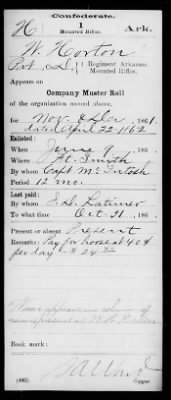 Confederate.
H 1 Ark.
Mounted Rifles.
W. Horton
Pvt, Co. D, 1 Regiment Arkansas Mounted Rifles.
Appears on
Company Muster Roll
of the organization named above,
for Nov. & Dec, 1861.
dated April 22 1862
Enlisted:
When June 9, 1861.
Where Ft. Smith
By whom Capt. McIntosh
Period 12 mo.
Last paid:
By whom S. D. Latimer
To what time Oct. 31, 1861.
Present or absent Present
Remarks: Pay for horse at 40¢
per day $24
Name appears in column of
names present as
Book mark:
(642) Copyist.